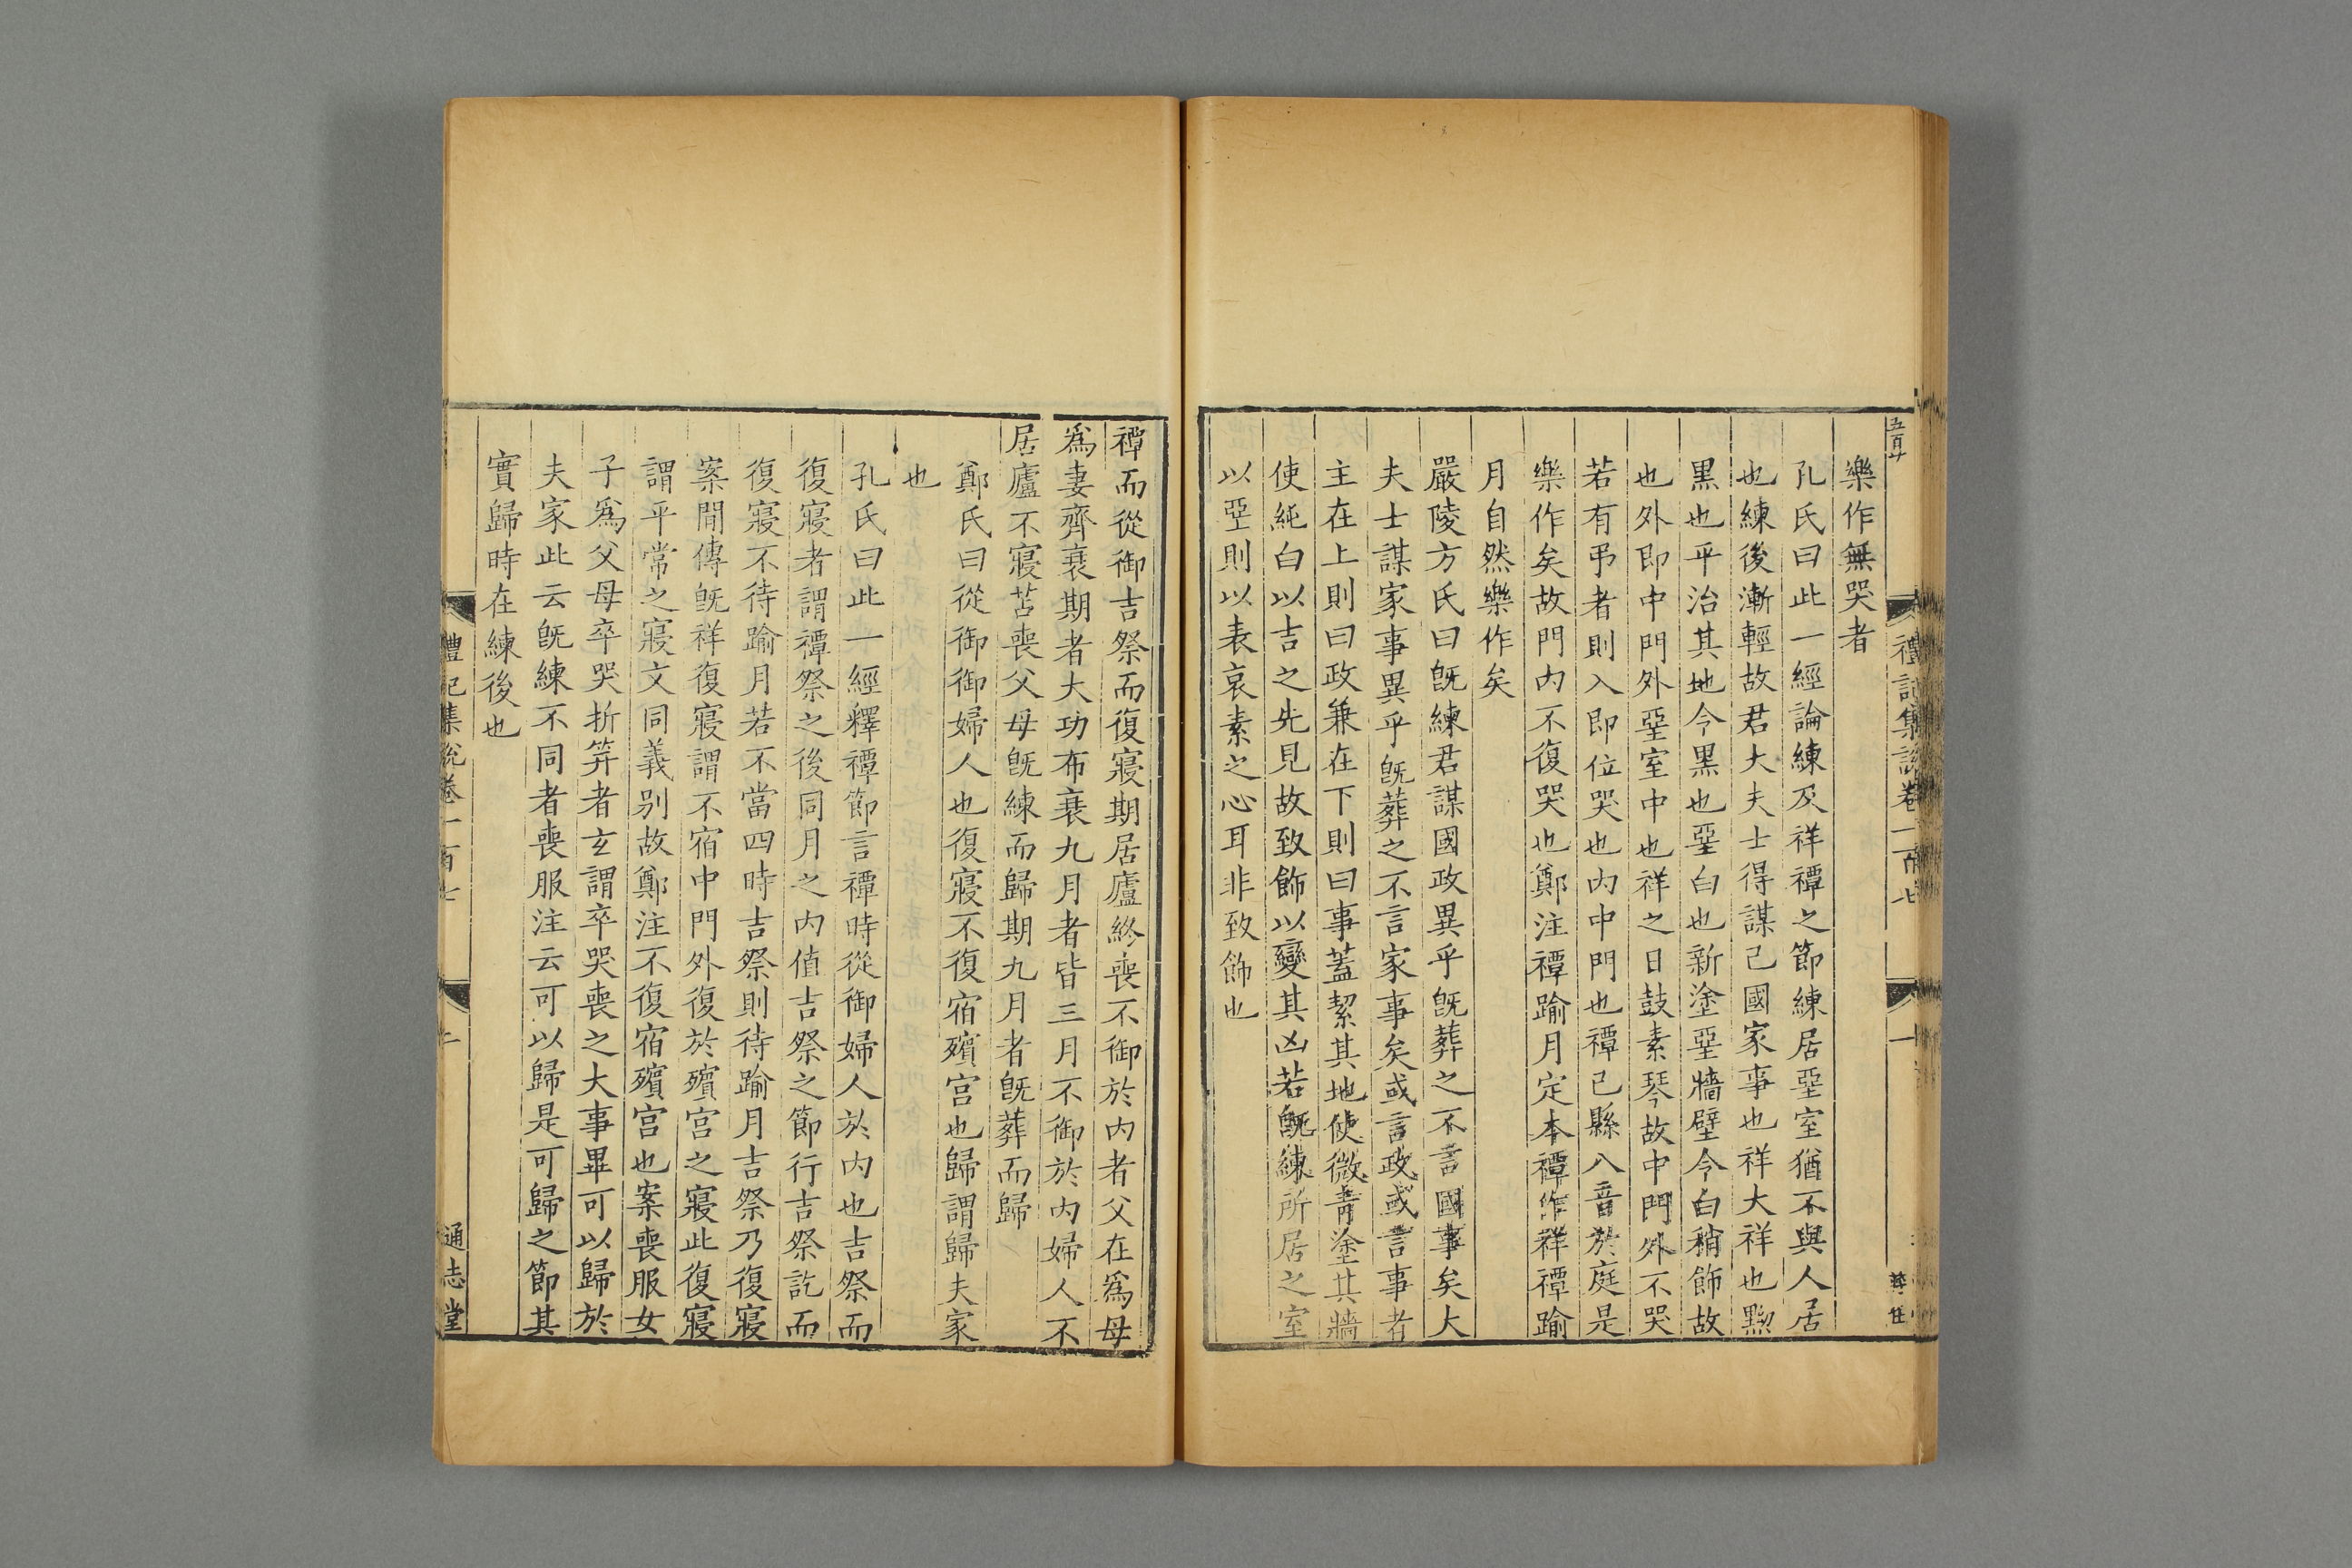 樂作無哭者
孔氏曰此一經論練及祥禫之節練居堊室猶不與人居
也練後漸輕故君大夫士得謀己國家事也祥大祥也黝
黑也平治其地令黑也堊白也新塗堊牆壁令白稍飾故
也外即中門外堊室中也祥之日鼓素琴故中門外不哭
若有弔者則入即位哭也內中門也禫已縣八音於庭是
樂作矣故門內不復哭也鄭注禫踰月定本禫作祥禫踰
月自然樂作矣
嚴陵方氏曰旣練君謀國政異乎旣葬之不言國事矣大
夫士謀家事異乎旣葬之不言家事矣或言政或言事者
主在上則曰政兼在下則曰事蓋絜其地使微青塗其牆
使純白以吉之先見故致飾以變其凶若旣練所居之室
以堊則以表哀素之心耳非致飾也
禮記集說卷一百七
禫而從御吉祭而復寢期居廬終喪不御於內者父在爲母
爲妻齊衰期者大功布衰九月者皆三月不御於內婦人不
居廬不寢苫喪父母旣練而歸期九月者旣葬而歸
鄭氏曰從御御婦人也復寢不復宿殯宮也歸謂歸夫家
也
孔氏曰此一經釋禫節言禫時從御婦人於內也吉祭而
復寢者謂禫祭之後同月之內值吉祭之節行吉祭訖而
復寢不待踰月若不當四時吉祭則待踰月吉祭乃復寢
案閒傳旣祥復寢謂不宿中門外復於殯宮之寢此復寢
謂平常之寢文同義别故鄭注不復宿殯宮也案喪服女
子爲父母卒哭折笄者玄謂卒哭喪之大事畢可以歸於
夫家此云旣練不同者喪服注云可以歸是可歸之節其
實歸時在練後也
禮記集說卷一百七
通志堂